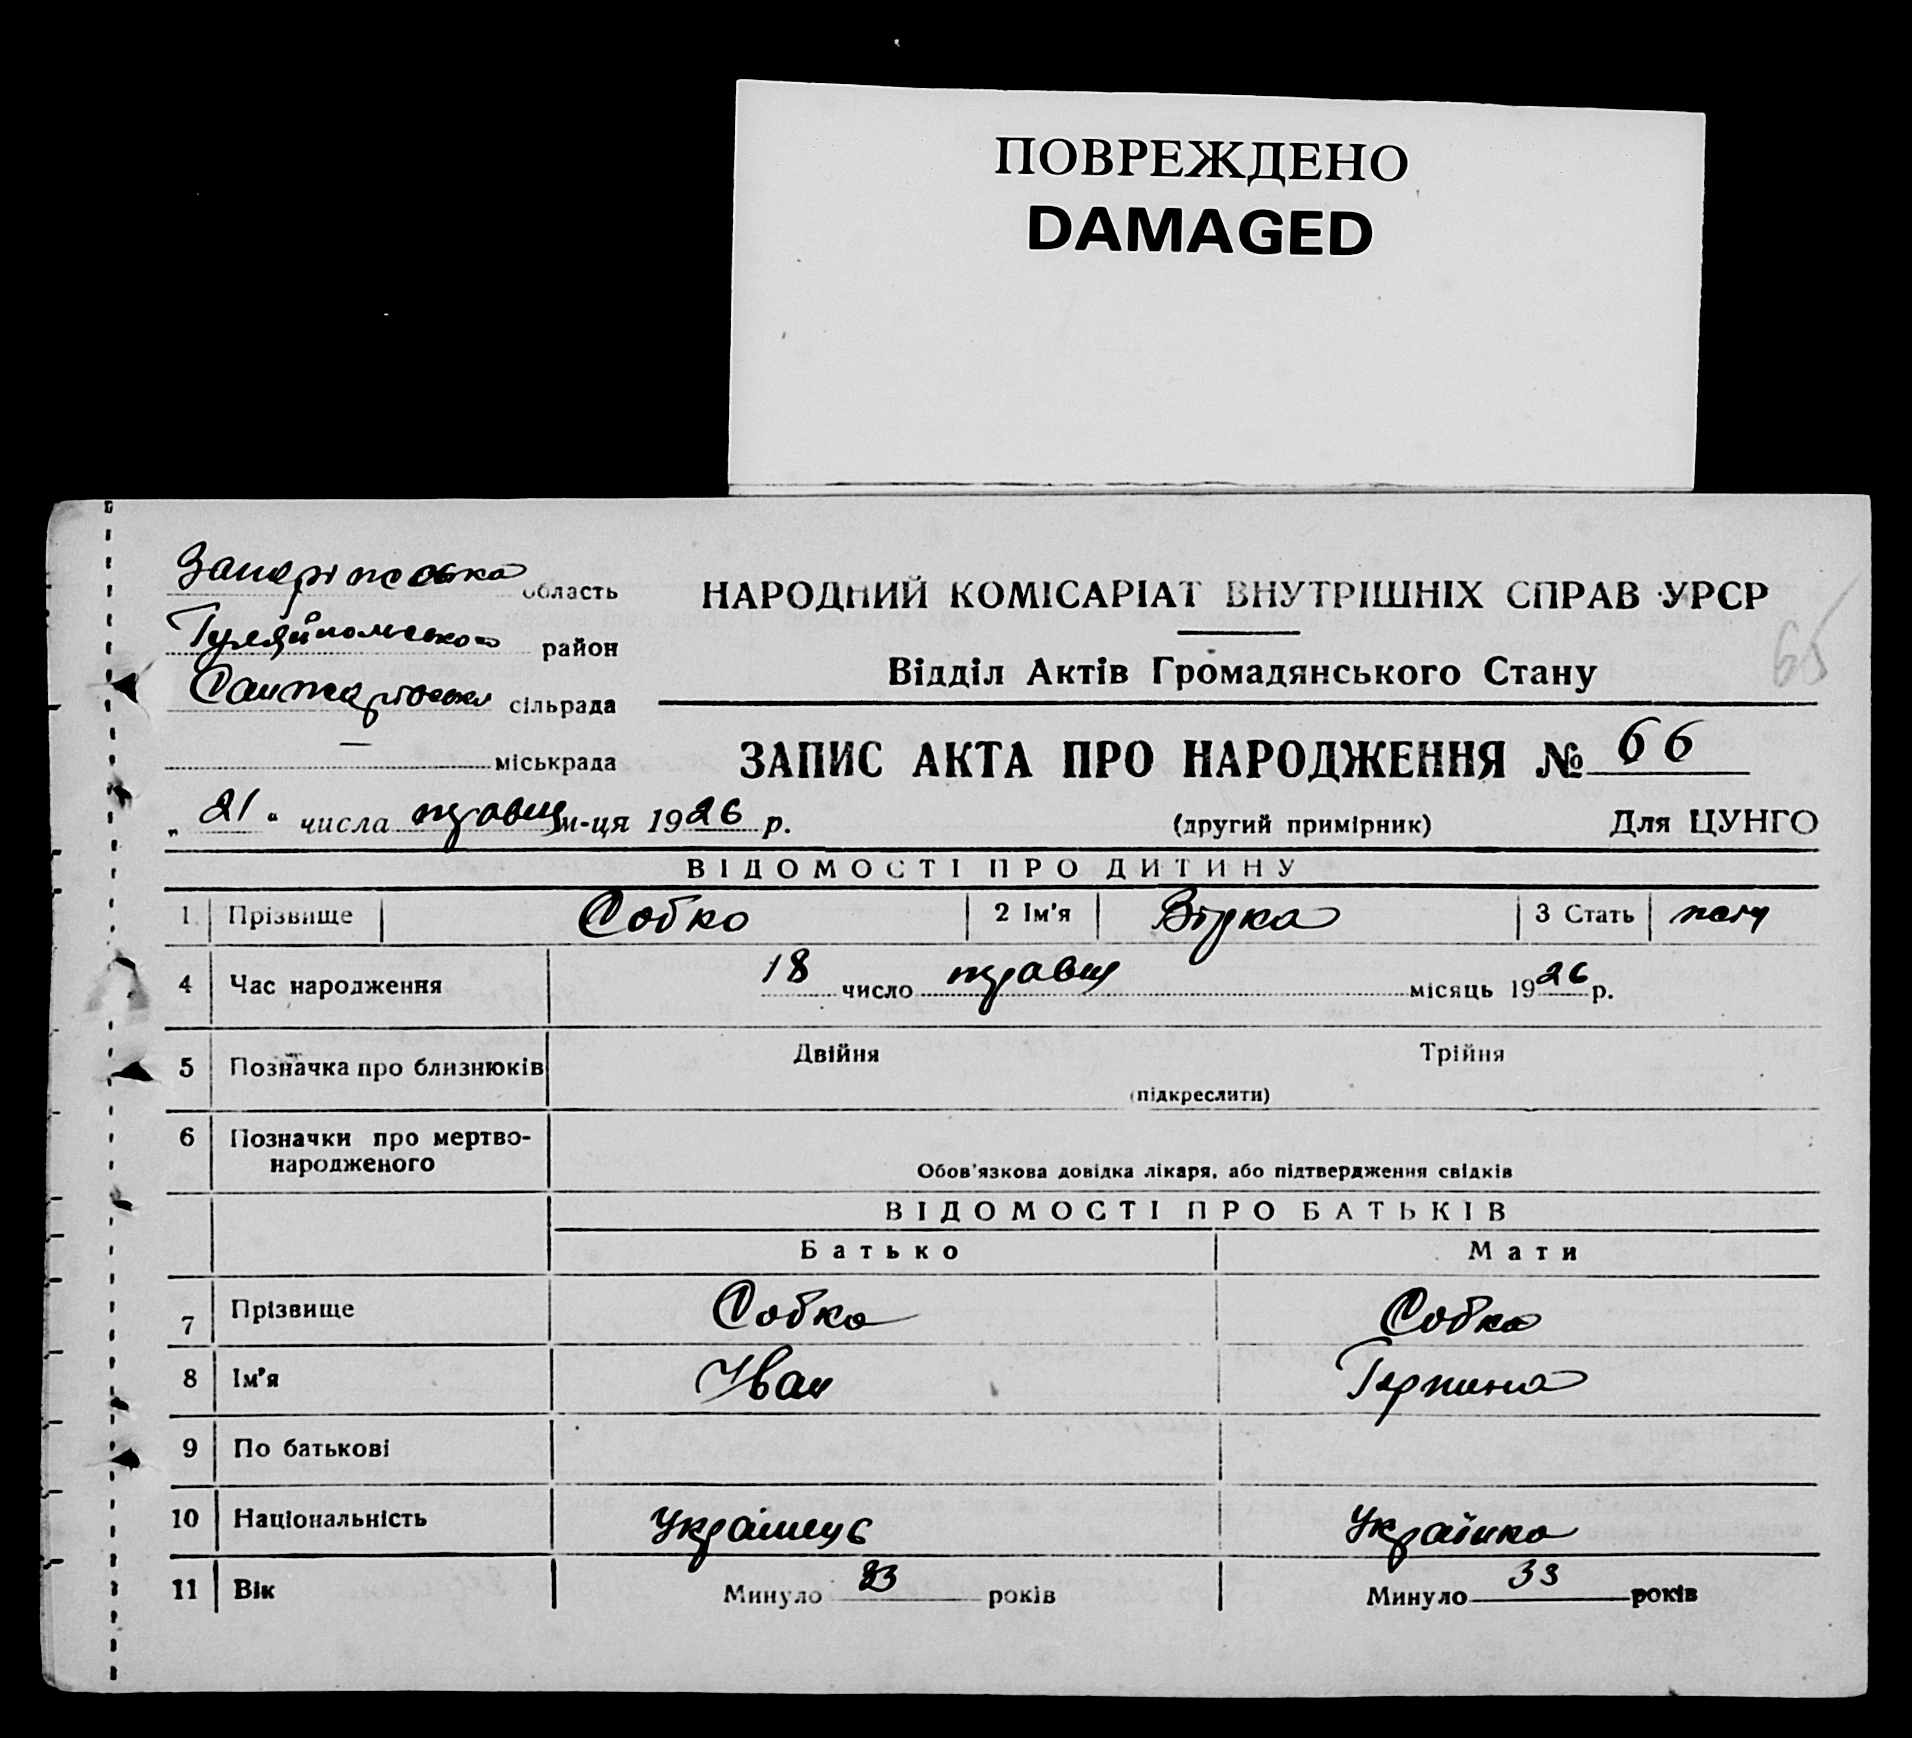 ПОВРЕЖДЕНО
DAMAGED
Запорізська область
Гуляйпольського район
сільрада
— міськрада
НАРОДНИЙ КОМІСАРІАТ ВНУТРІШНІХ СПРАВ УРСР
65
Відділ Актів Громадянського Стану
ЗАПИС АКТА ПРО НАРОДЖЕННЯ № 66
„21“ числа травня м-ця 1926 р.
(другий примірник) Для ЦУНГО
ВІДОМОСТІ ПРО ДИТИНУ
1 Прізвище Собко 2 Ім'я Вірка 3 Стать
4 Час народження 18 число травня місяць 1926 р.
5 Позначка про близнюків Двійня Трійня
(підкреслити)
6 Позначки про мертво-
народженого
Обов'язкова довідка лікаря, або підтвердження свідків
ВІДОМОСТІ ПРО БАТЬКІВ
Батько Мати
7 Прізвище Собко Собко
8 Ім'я Іван
9 По батькові
10 Національність Українець Українка
11 Вік Минуло років Минуло 33 років